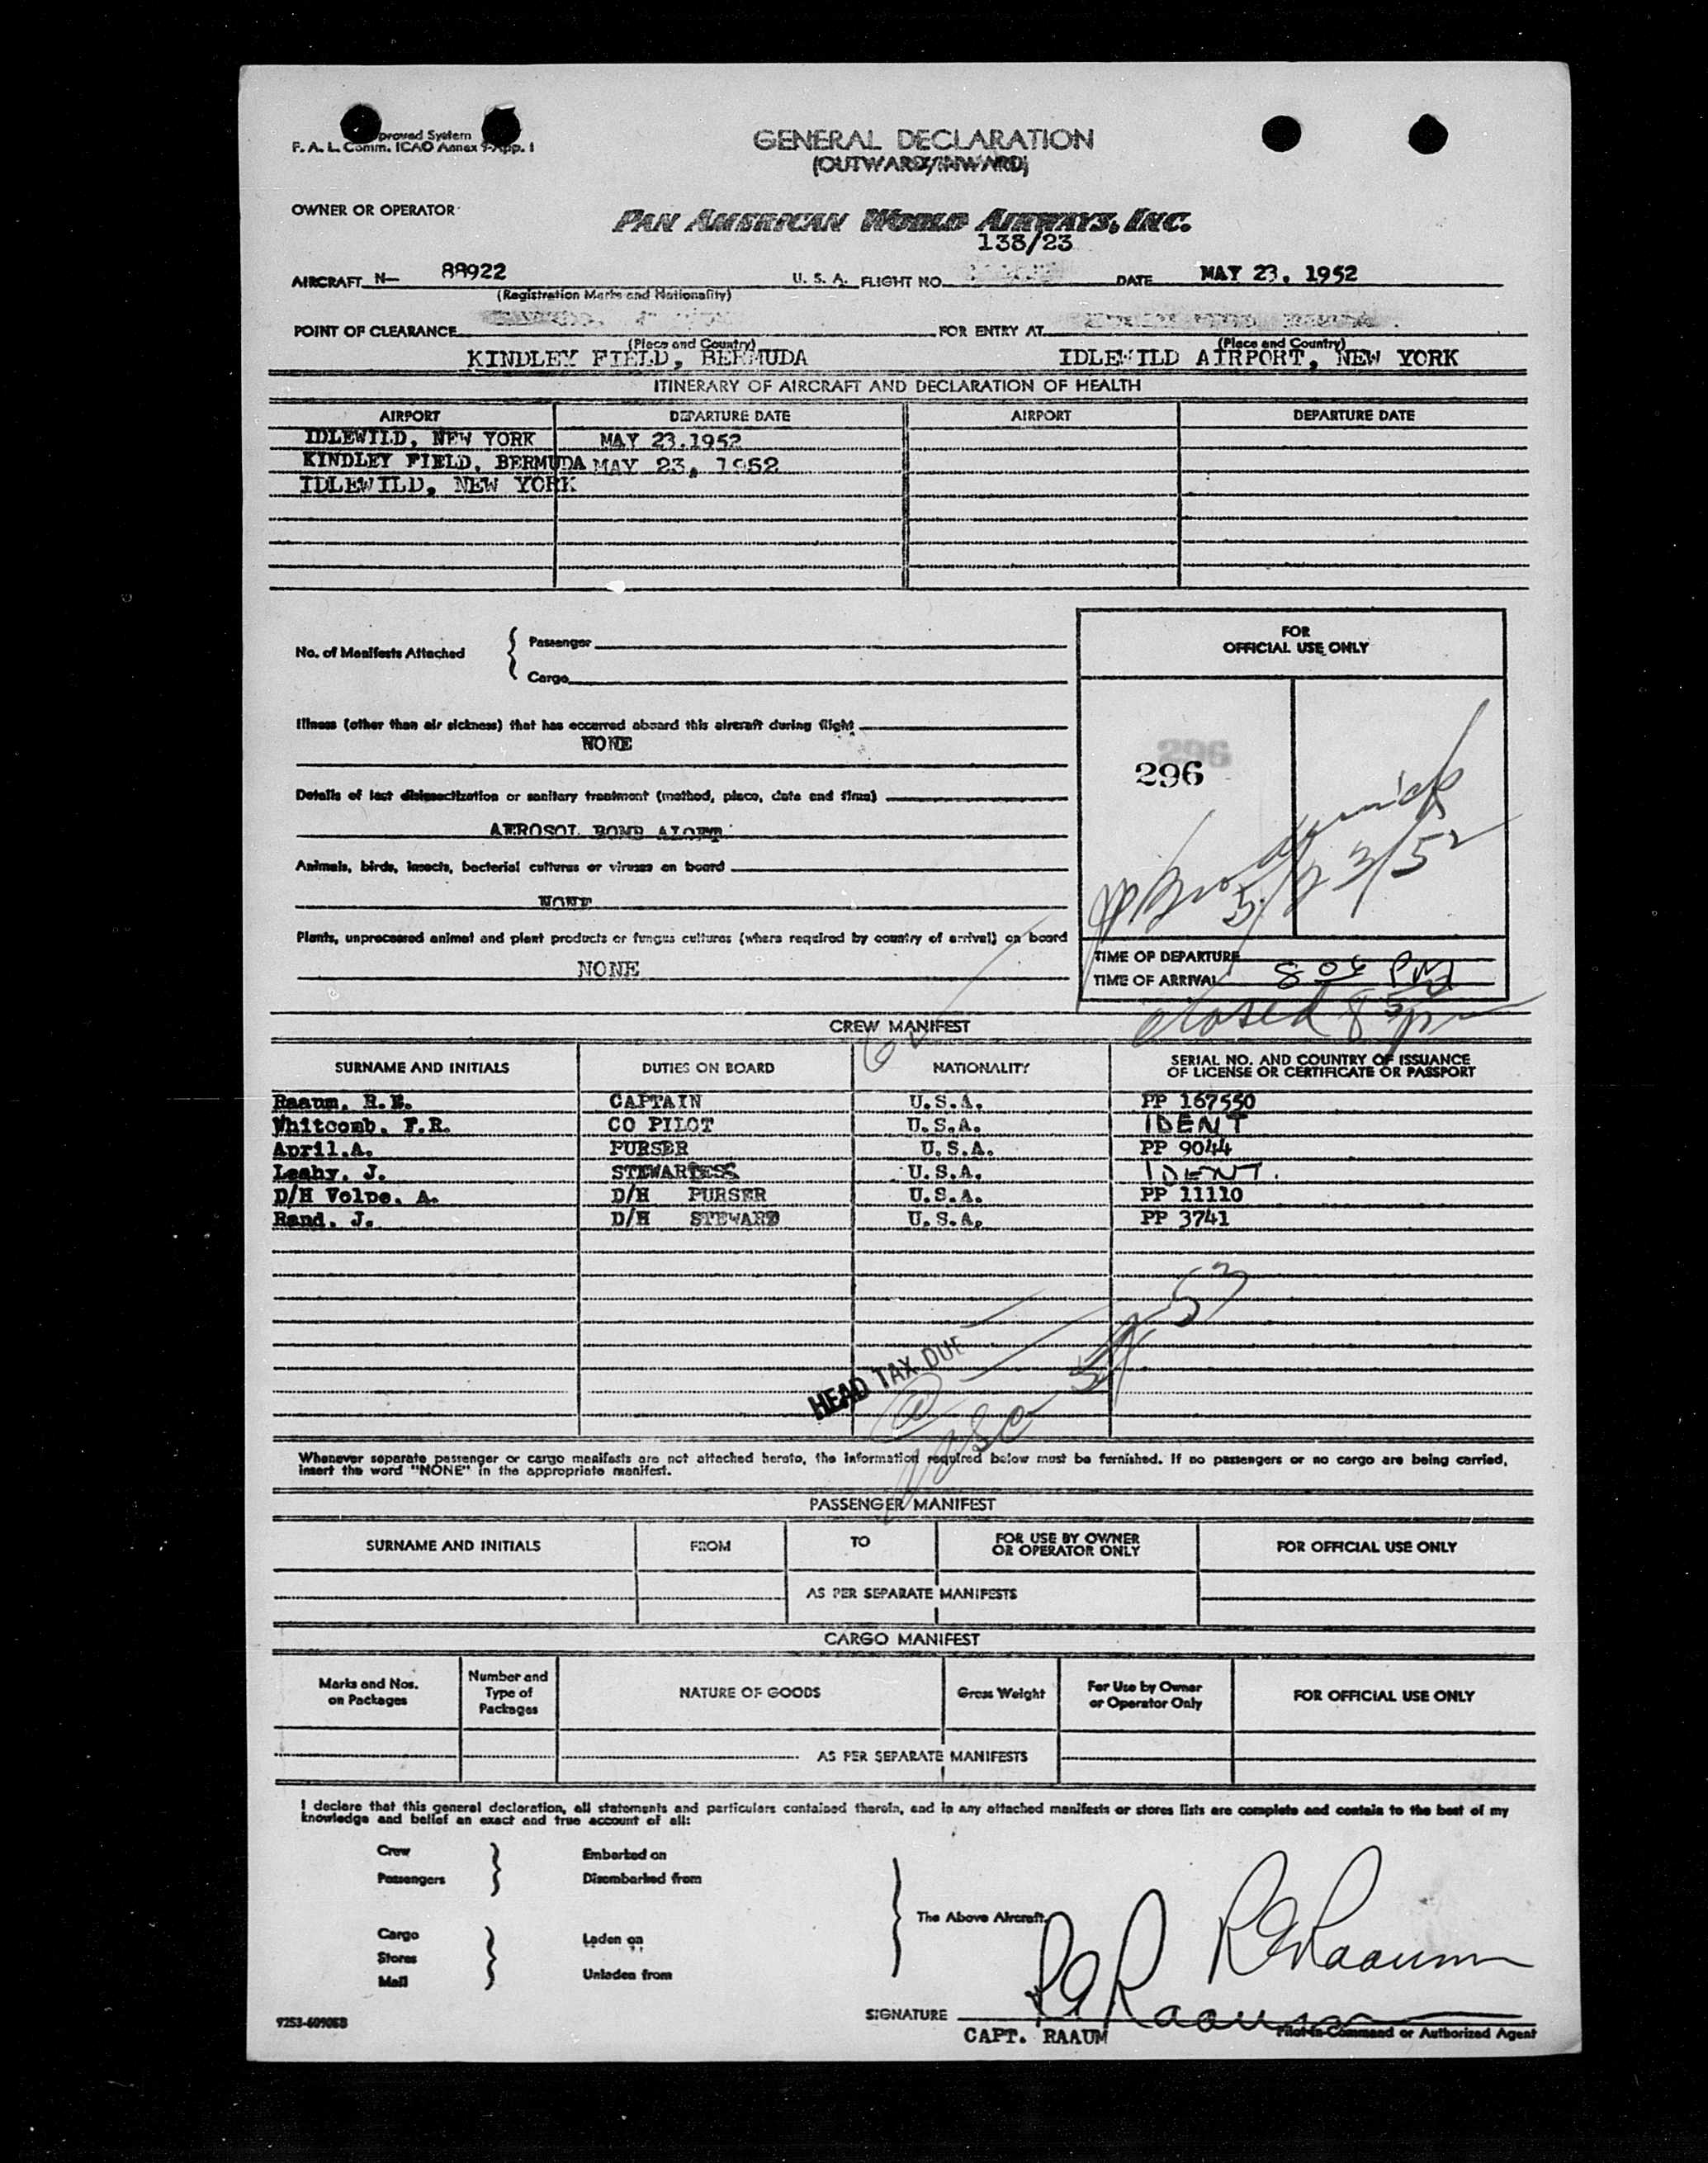 Approved System
F. A. L. Comm. ICAO Annex 9-App. 1
GENERAL DECLARATION
(OUTWARD/INWARD)
OWNER OR OPERATOR
PAN AMERICAN WORLD AIRWAYS, INC.
138/23
AIRCRAFT N- 88922 U. S. A. FLIGHT NO. DATE MAY 23, 1952
(Registration Marks and Nationality)
POINT OF CLEARANCE FOR ENTRY AT
(Place and Country) (Place and Country)
KINDLEY FIELD, BERMUDA IDLEWILD AIRPORT, NEW YORK
ITINERARY OF AIRCRAFT AND DECLARATION OF HEALTH
AIRPORT DEPARTURE DATE AIRPORT DEPARTURE DATE
IDLEWILD, NEW YORK MAY 23.1952
KINDLEY FIELD, BERMUDA MAY 23, 1952
IDLEWILD, NEW YORK
No. of Manifests Attached { Passenger
Cargo
FOR
OFFICIAL USE ONLY
Illness (other than air sickness) that has occurred aboard this aircraft during flight
NONE
296
296
Details of last disinsectization or sanitary treatment (method, place, date and time)
AEROSOL BOMB ALOFT
Animals, birds, insects, bacterial cultures or viruses on board
NONE
5/23/52
Plants, unprocessed animal and plant products or fungus cultures (where required by country of arrival) on board
NONE
TIME OF DEPARTURE
TIME OF ARRIVAL 8 06 PM
closed
CREW MANIFEST
SURNAME AND INITIALS DUTIES ON BOARD NATIONALITY SERIAL NO. AND COUNTRY OF ISSUANCE
OF LICENSE OR CERTIFICATE OR PASSPORT
Raaum, R.E. CAPTAIN U.S.A. PP 167550
Whitcomb, F.R. CO PILOT U.S.A. IDENT
April.A. PURSER U.S.A. PP 9044
Leahy, J. STEWARTESS U.S.A. IDENT.
D/H Volpe, A. D/H PURSER U.S.A. PP 11110
Rand, J. D/H STEWARD U.S.A. PP 3741
HEAD TAX DUE
Whenever separate passenger or cargo manifests are not attached hereto, the information required below must be furnished. If no passengers or no cargo are being carried,
insert the word "NONE" in the appropriate manifest.
PASSENGER MANIFEST
SURNAME AND INITIALS FROM TO FOR USE BY OWNER
OR OPERATOR ONLY FOR OFFICIAL USE ONLY
AS PER SEPARATE MANIFESTS
CARGO MANIFEST
Marks and Nos.
on Packages Number and
Type of
Packages NATURE OF GOODS Gross Weight For Use by Owner
or Operator Only FOR OFFICIAL USE ONLY
AS PER SEPARATE MANIFESTS
I declare that this general declaration, all statements and particulars contained therein, and in any attached manifests or stores lists are complete and contain to the best of my
knowledge and belief an exact and true account of all:
Crew Embarked on
Passengers Disembarked from
The Above Aircraft
Cargo Laden on
Stores
Mail Unladen from
RERaaum
SIGNATURE RERaaum
CAPT. RAAUM Pilot-in-Command or Authorized Agent
9253-60906B